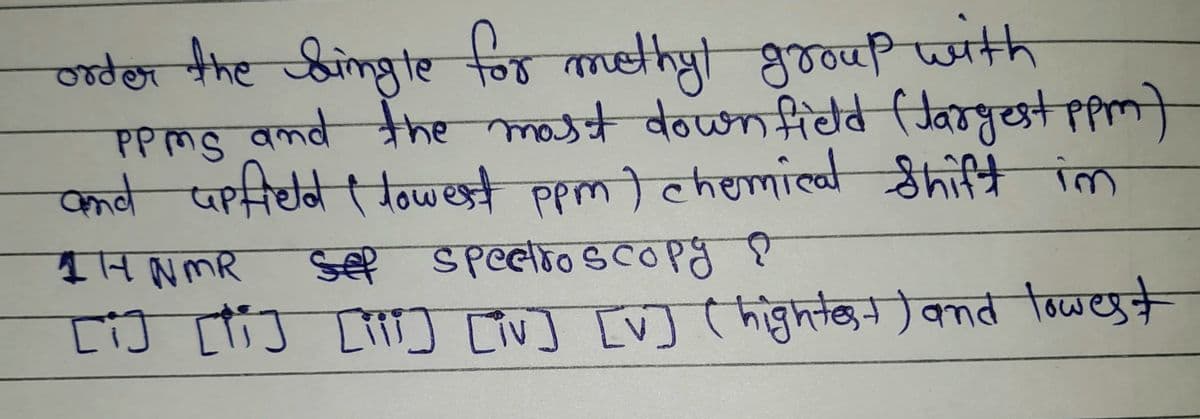 order the single for methyl group with
ppms and the most downfield (largest ppm)
and upfield (lowest ppm) chemical shift im
1H NMR spectroscopy ?
[i] [ii] [iii] [iv] [v] (hightest) and lowest